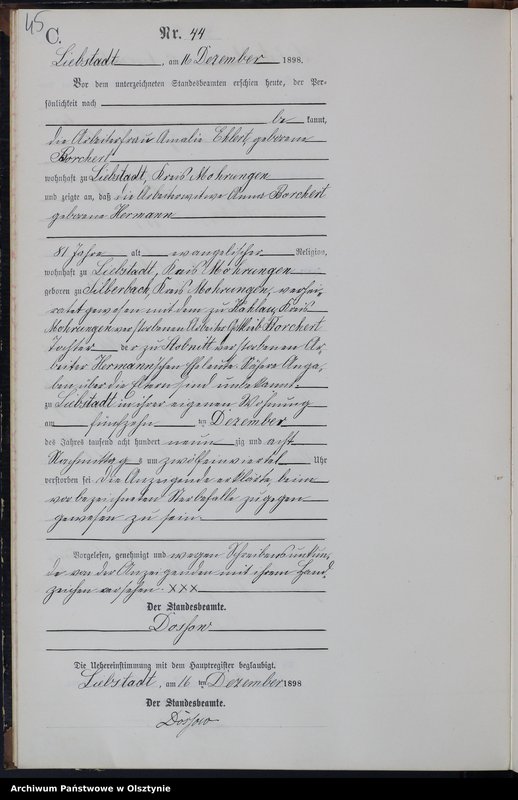 45
C.
Nr. 44
Liebstadt, am 16 Dezember 1898.
Vor dem unterzeichneten Standesbeamten erschien heute, der Per-
sönlichkeit nach
be kannt,
die Arbeiterfrau Amalie Ehlert geborene
Borchert
wohnhaft zu Liebstadt, Kreis Mohrungen
und zeigte an, daß die Arbeiterwitwe Anna Borchert
geborene Hermann
81 Jahre alt evangelischer Religion,
wohnhaft zu Liebstadt, Kreis Mohrungen
geboren zu Silberbach, Kreis Mohrungen, verhei-
ratet gewesen mit dem zu Hahlau, Kreis
Mohrungen verstorbenen Arbeiter Gottlieb Borchert
Tochter der zu verstorbenen Ar-
beiter Hermann'schen Eheleute. Nähere Anga-
ben über die Eltern sind unbekannt.
zu Liebstadt in ihrer eigenen Wohnung
am fünfzehn ten Dezember
des Jahres tausend acht hundert neun zig und acht
Nachmittags um zwölfeinviertel Uhr
verstorben sei. Die Anzeigende erklärte, beim
vorbezeichneten Sterbefalle zugegen
gewesen zu sein.
Vorgelesen, genehmigt und wegen Schreibensunkun-
de von der Anzeigenden mit ihrem Hand-
zeichen versehen. XXX
Der Standesbeamte.
Dossow
Die Uebereinstimmung mit dem Hauptregister beglaubigt.
Liebstadt, am 16 ten Dezember 1898
Der Standesbeamte.
Dossow
Archiwum Państwowe w Olsztynie